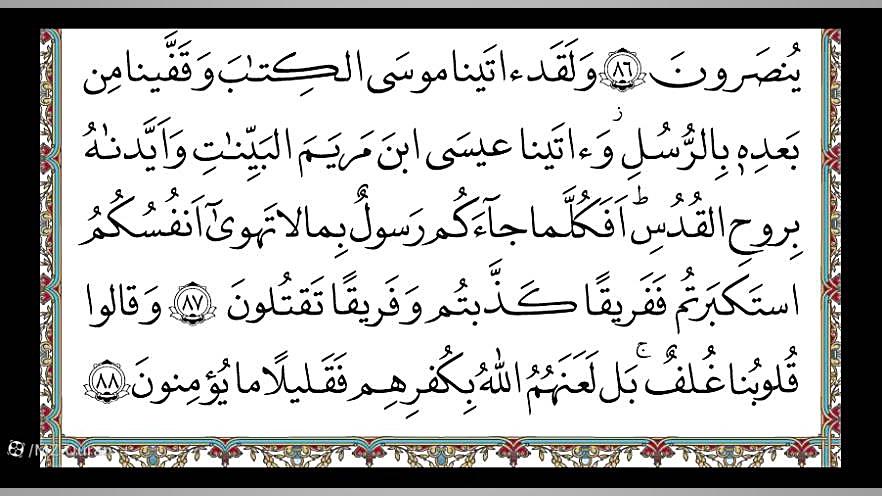 يُنصَرونَ ﴿٨٦﴾ وَلَقَد ءاتَينا موسَى الـكِـتـٰبَ وَ قَفَّينا مِن
بَعدِهٖ بِالرُّسُلِ ۖ وَ ءاتَينا عيسَى ابنَ مَريَمَ البَيِّنـٰتِ وَ اَيَّدنـٰهُ
بِروحِ القُدُسِ ؕ اَفَكُلَّما جآءَكُم رَسولٌۢ بِما لا تَهوىٰٓ اَنفُسُكُمُ
استَكبَرتُم فَفَريقًا كَـذَّبتُم وَ فَريقًا تَقتُلونَ ﴿٨٧﴾ وَ قالوا
قُلوبُنا غُلفٌ ۚ بَل لَعَنَهُمُ اللّٰهُ بِكُفرِهِـم فَقَليلًا ما يُؤمِنونَ ﴿٨٨﴾